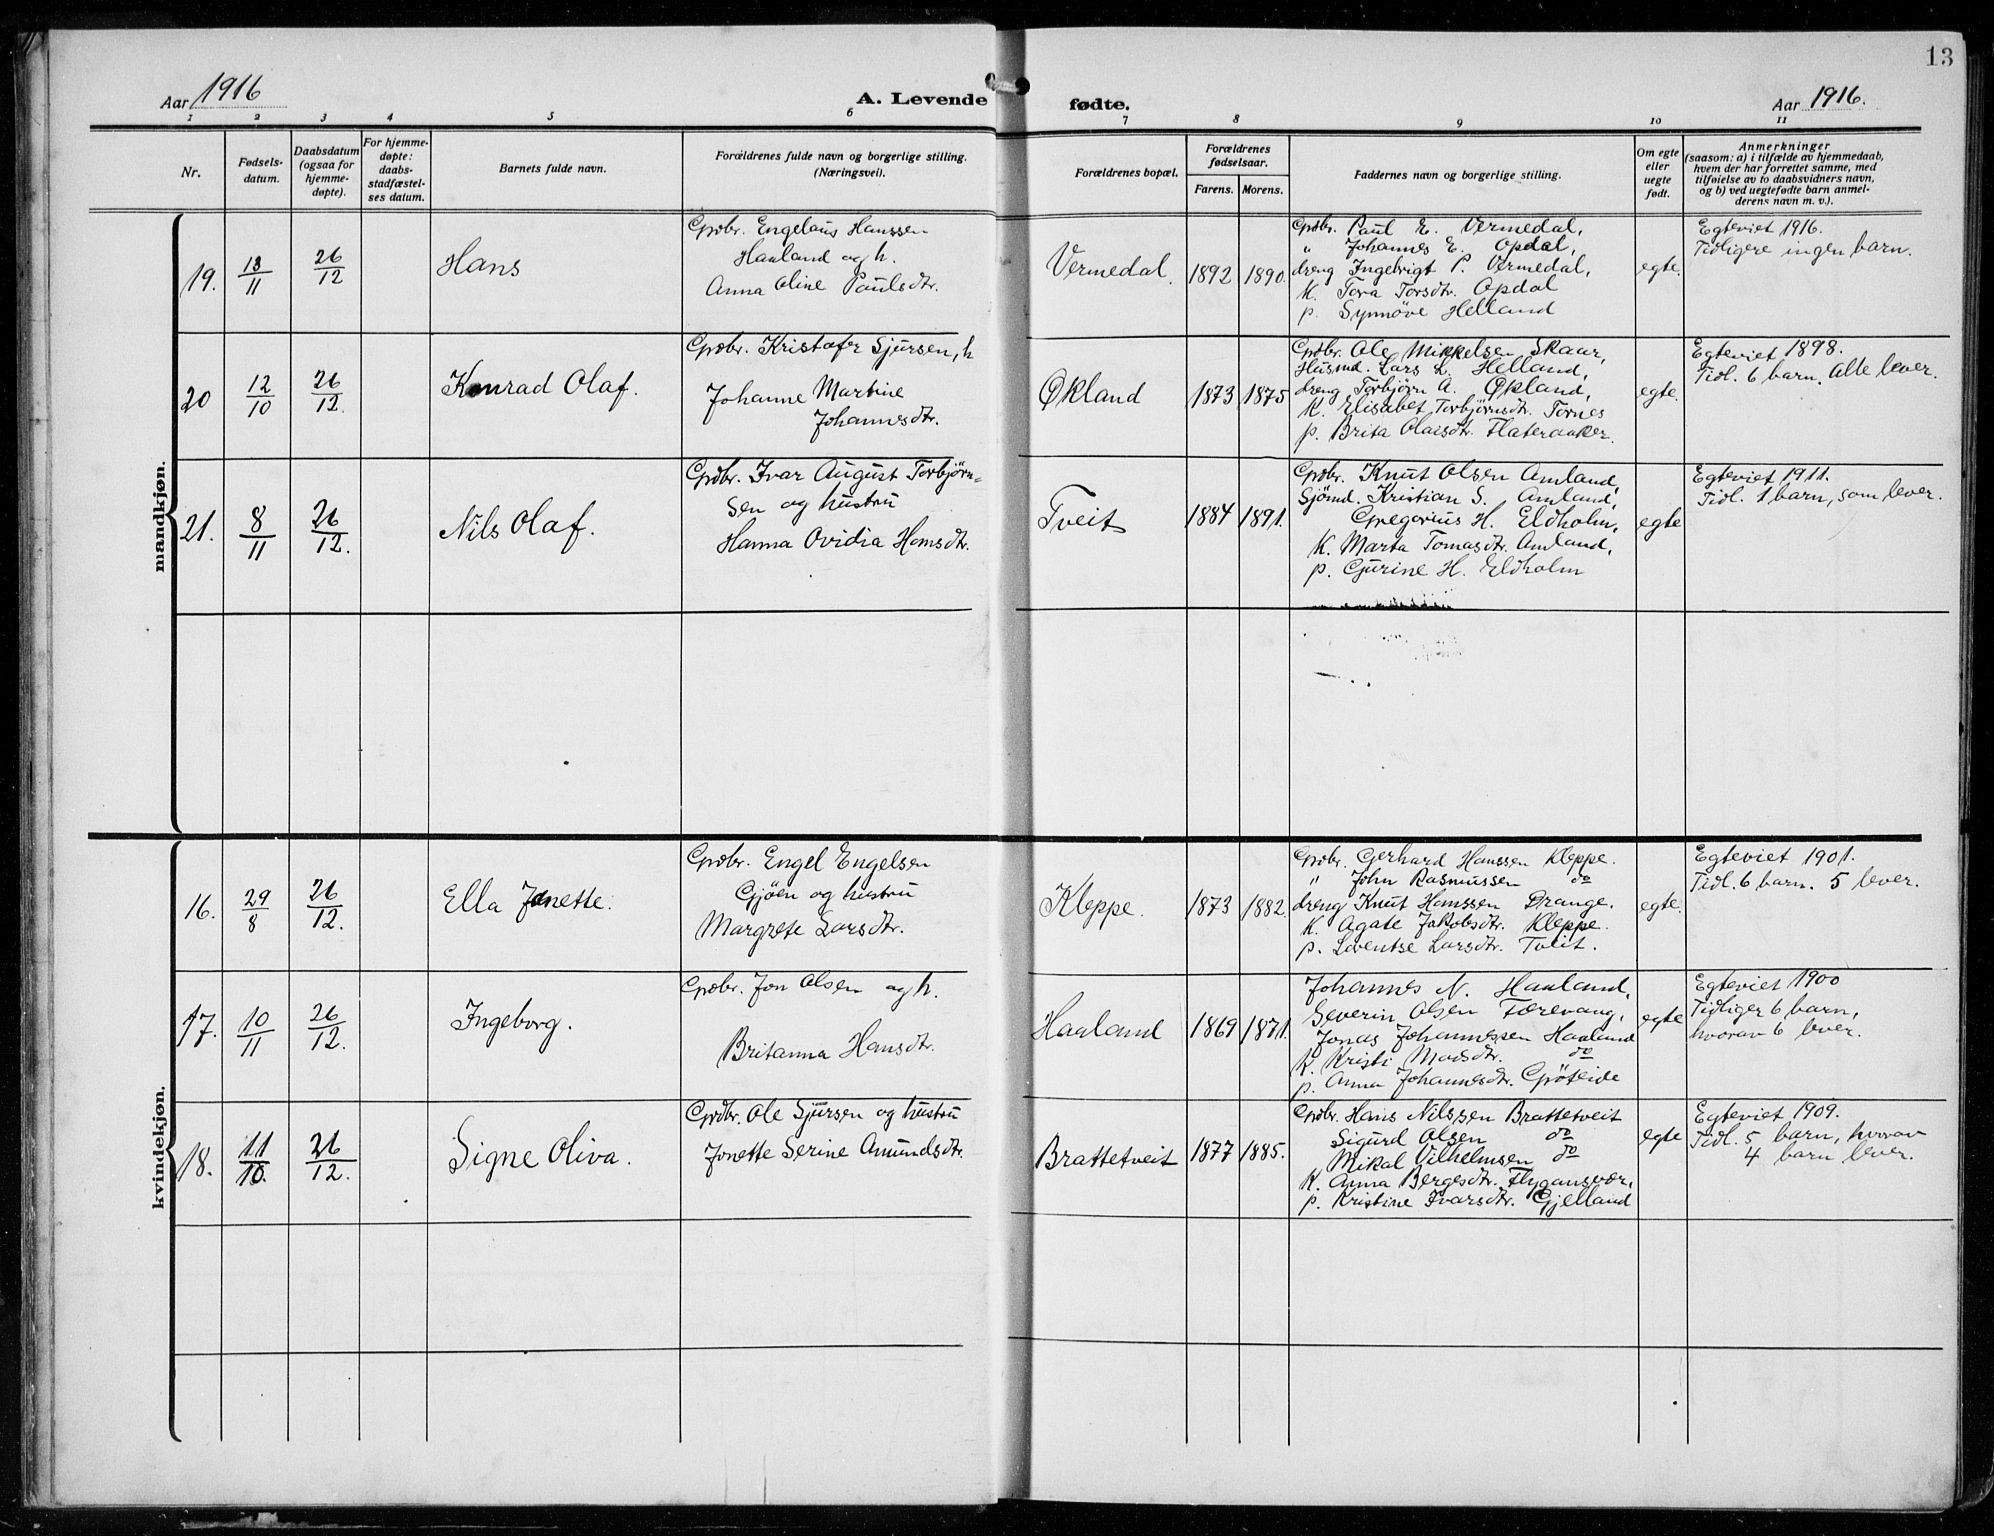 13
Aar 1916
A. Levende fødte.
Aar 1916.
1 2 3 4 5 6 7 8 9 10 11
Nr.
Fødsels-
datum.
Daabsdatum
(ogsaa for
hjemme-
døpte).
For hjemme-
døpte:
daabs-
stadfæstel-
ses datum.
Barnets fulde navn.
Forældrenes fulde navn og borgerlige stilling.
(Næringsvei).
Forældrenes bopæl.
Forældrenes
fødselsaar.
Farens. Morens.
Faddernes navn og borgerlige stilling.
Om egte
eller
uegte
født.
Anmerkninger
(saasom: a) i tilfælde av hjemmedaab,
hvem der har forrettet samme, med
tilføielse av to daabsvidners navn,
og b) ved uegtefødte barn anmel-
derens navn m. v.).
mandkjøn.
19. 13/11 26/12 Hans
Gpdbr. Engelaus Hanssen
Haaland og h.
Anna Oline Paulsdtr.
Vermedal. 1892 1890.
Gpdbr. Paul E. Vermedal,
" Johannes E. Opdal,
dreng Ingebrigt P. Vermedal,
K. Tora Torsdtr. Opdal
p. Synnøve Helland
egte.
Egteviet 1916.
Tidligere ingen barn.
20 12/10 26/12. Konrad Olaf.
Gpdbr. Kristofer Sjursen, h
Johanne Martine
Johannesdtr.
Økland 1873 1875
Gpdbr. Ole Mikkelsen Skaar,
Husmd. Lars L. Helland,
dreng Torbjørn A. Økland,
K. Elisabet Torbjørnsdtr. Tornes
p. Brita Olaisdtr. Flateraaker.
egte.
Egteviet 1898.
Tidl. 6 barn. Alle lever.
21. 8/11 26/12. Nils Olaf.
Gpdbr. Ivar August Torbjørn-
sen og hustru
Hanna Ovidia Hansdtr.
Tveit 1884 1891.
Gpdbr. Knut Olsen Amland,
Sjømd. Kristian S. Amland,
Gregorius H. Eldholm,
K. Marta Tomasdtr. Amland,
p. Gurine H. Eldholm
egte
Egteviet 1911.
Tidl. 1 barn, som lever.
kvindekjøn.
16. 29/8 26/12. Ella Jonette.
Gpdbr. Engel Engelsen
Gjøen og hustru
Margrete Larsdtr.
Kleppe. 1873 1882.
Gpdbr. Gerhard Hanssen Kleppe.
" John Rasmussen do
dreng Knut Hanssen Drange.
K. Agate Jakobsdtr. Kleppe.
p. Larsdtr. Tveit.
egte.
Egteviet 1901.
Tidl. 6 barn. 5 lever.
17. 10/11 26/12. Ingeborg.
Gpdbr. Jon Olsen og h.
Britanna Hansdtr.
Haaland 1869 1871.
Johannes N. Haaland,
Severin Olsen Færevaag,
Jonas Johannessen Haaland
K. Kristi Madsdtr. do
p. Anna Johannesdtr.
egte
Egteviet 1900
Tidliger 6 barn,
hvorav 6 lever.
18. 11/10. 26/12. Signe Oliva.
Gpdbr. Ole Sjursen og hustru
Jonette Serine Amundsdtr.
Brattetveit 1877 1885.
Gpdbr. Hans Nilssen Brattetveit
Sigurd Olsen do
Mikal Vilhelmsen do
K. Anna Bergesdtr. Flygansvær,
p. Kristine Ivarsdtr. Gjelland
egte
Egteviet 1909.
Tidl. 5 barn, hvorav
4 barn lever.